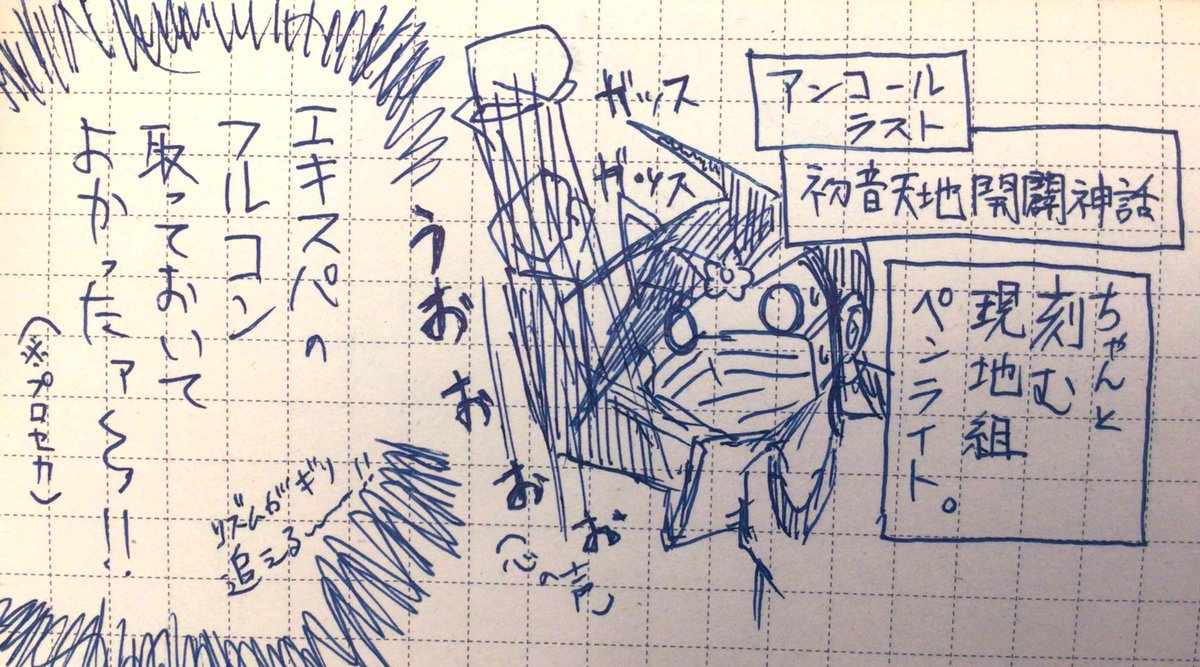 アンコール
ラスト
初音天地開闢神話
ちゃんと
刻む
現地組
ペンライト。
ガッス
ガッス
うおおおお
心の声
エキスパの
フルコン
取っておいて
よかったァ～～!!
(※プロセカ)
リズムがギリ
追える〜〜!!